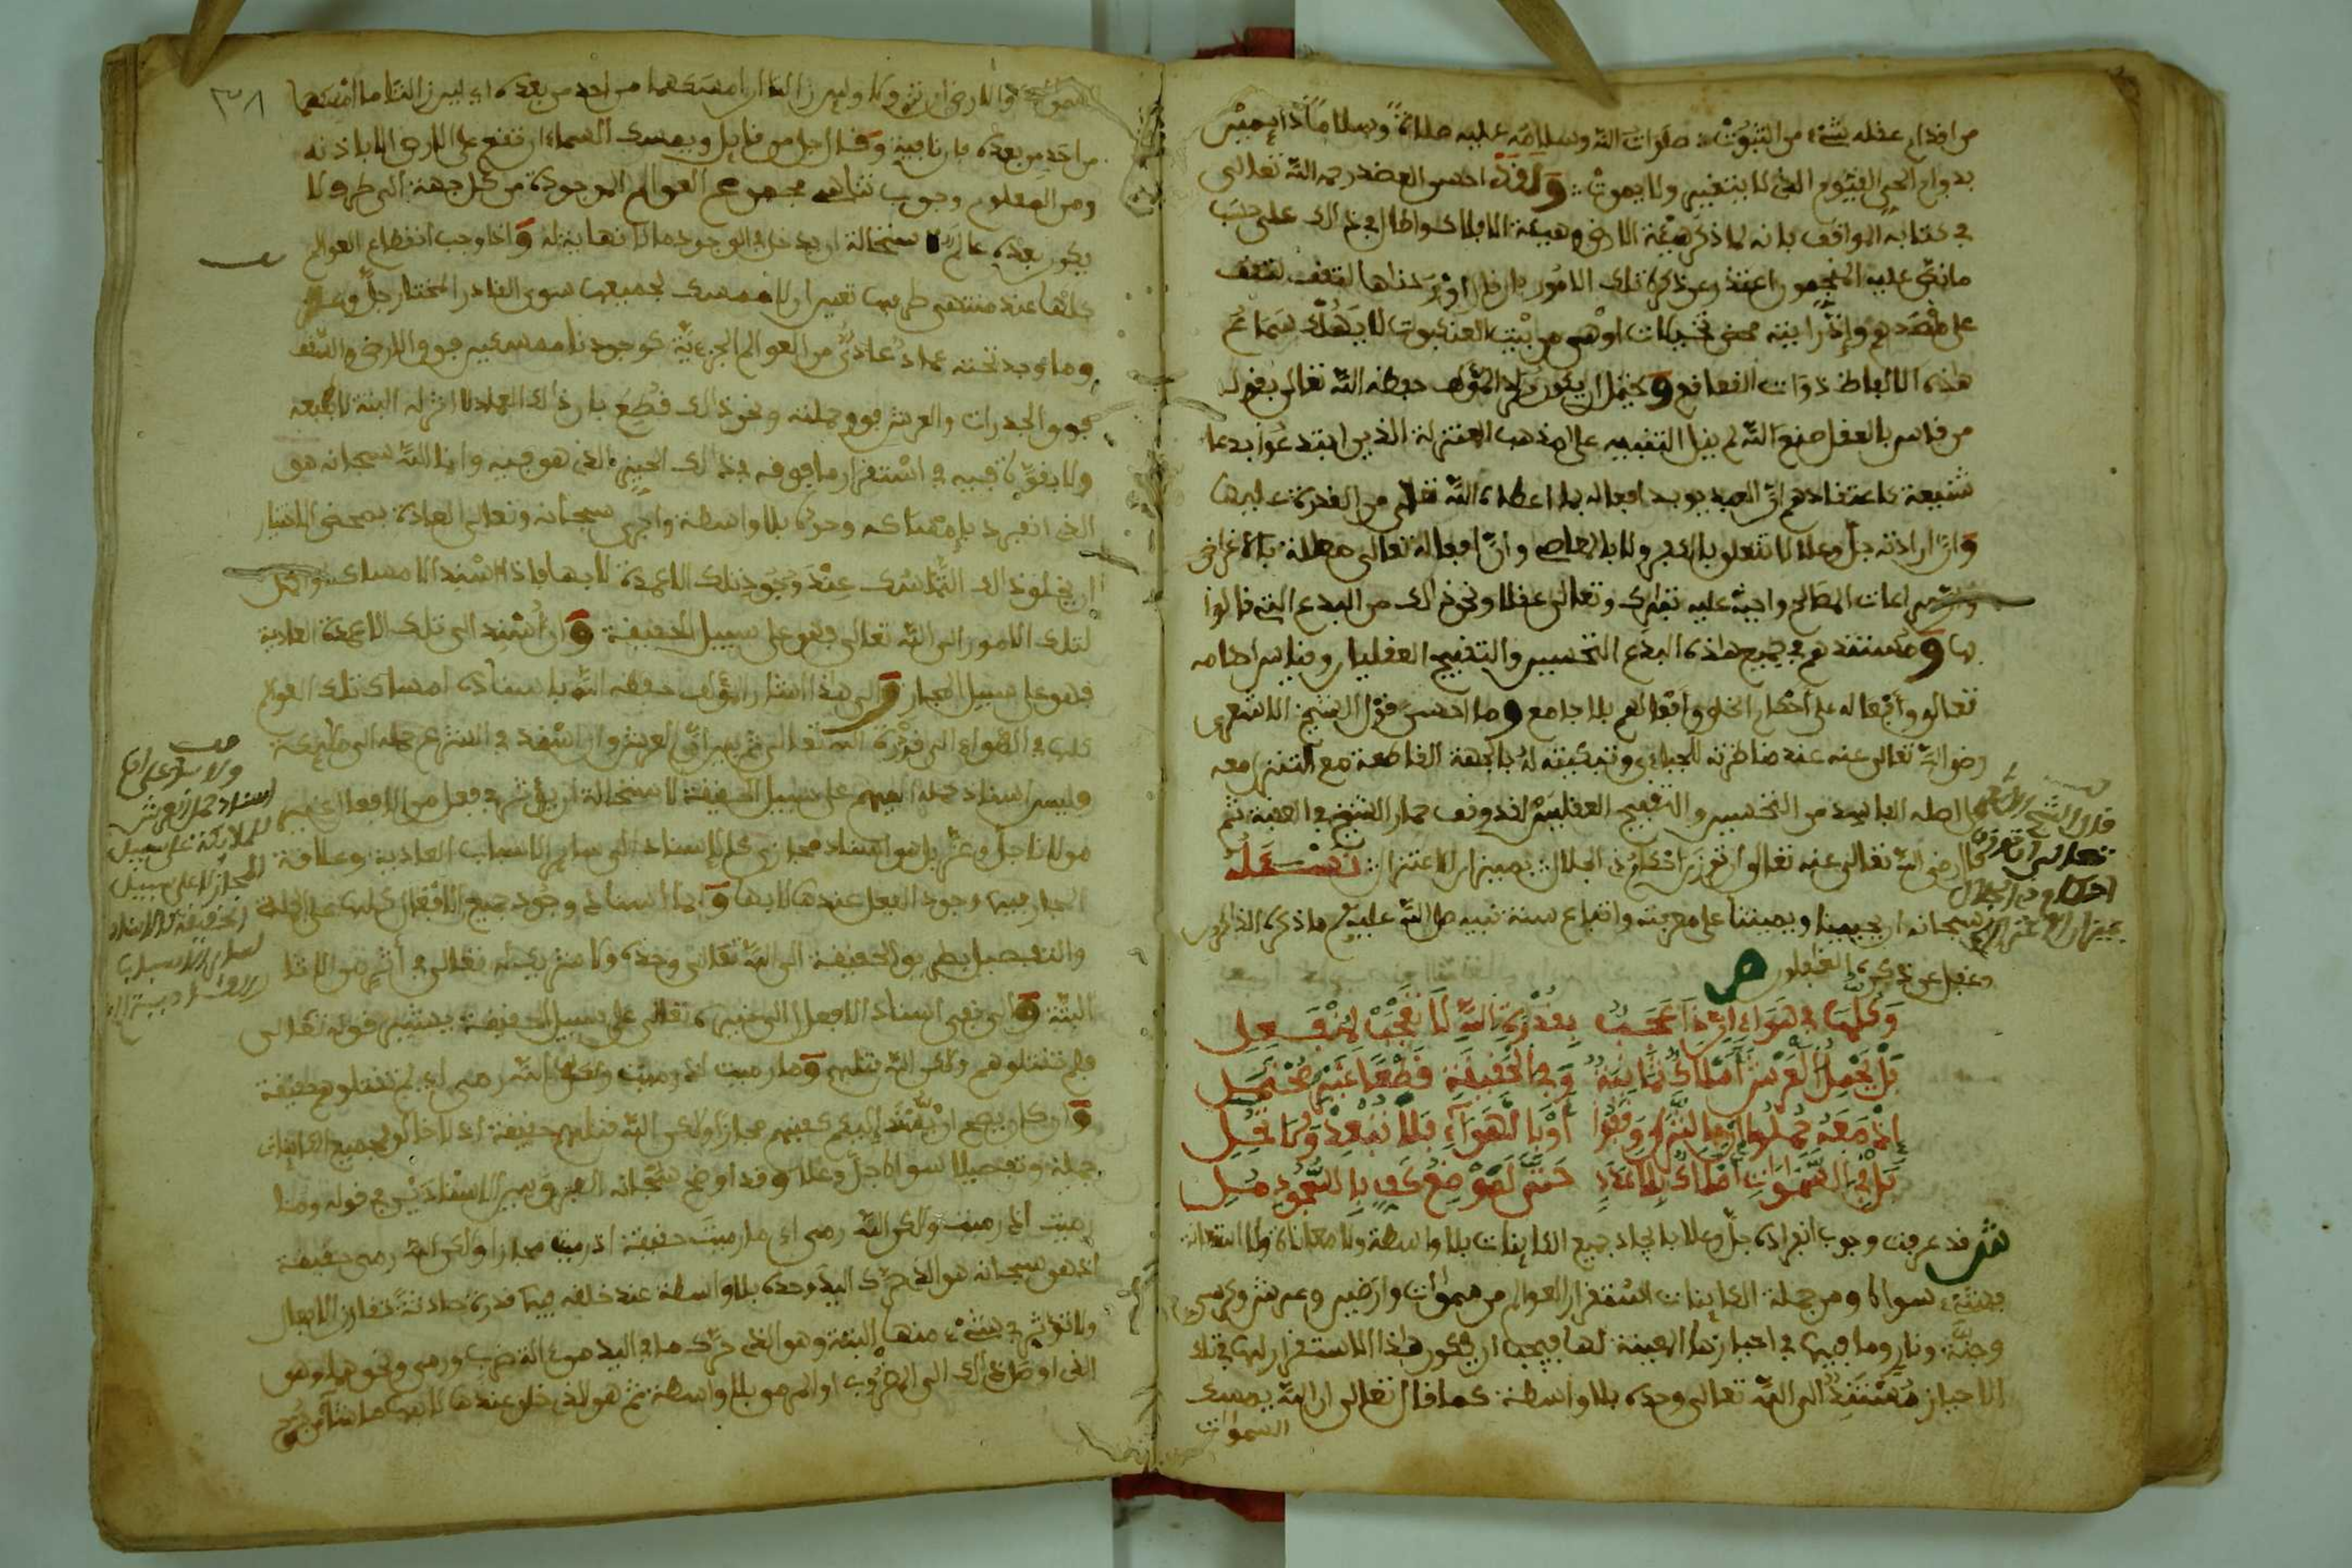 من اقدام عقله بشيء من الثبوت صلوات الله وسلامه عليه صلاة وسلاما دايمين
بدوام الحي القيوم الذي لا يتغير ولا يموت ولقد احسن العضد رحمه الله تعالى
في كتابه المواقف بانه لما ذكر هيئة الارض وهيئة الافلاك واطال في ذلك على حسب
ما نص عليه المنجمون اعتذر عن ذكر تلك الامور بان قال لتقف
على مقصدهم واذا رايته محض تخيلات اوهى من بيت العنكبوت لا يهولك سماع
هذه الالفاظ ذوات القعاقع ويحتمل ان يكون مراد المؤلف حفظه الله تعالى بقوله
من قاس بالعقل صنع الله لم ينل التنبيه على مذهب المعتزلة الذين ابتدعوا بدعا
شنيعة كاعتقادهم ان العبد يوجد افعاله بما اعطاه الله تعالى من القدرة عليها
وان ارادته جل وعلا لا تتعلق بالكفر ولا بالمعاصي وان افعاله تعالى معللة بالاغراض
وان مراعات المصالح واجبة عليه تبارك وتعالى عقلا ونحو ذلك من البدع التي قالوا
بها ومستندهم في جميع هذه البدع التحسين والتقبيح العقليان وقياس احكامه
تعالى وافعاله على احكام الخلق وافعالهم بلا جامع وما احسن قول الشيخ الاشعري
رضي الله تعالى عنه عند مناظرته للجبائي وتبكيته له بالحجة القاطعة مع التنزل معه
الى اصله الفاسد من التحسين والتقبيح العقليين لقد وقف حمار الشيخ في العقبة ثم
قال رضي الله تعالى عنه تعالى ان توزن احكام ذي الجلال بميزان الاعتزال نسئله
سبحانه ان يحيينا ويميتنا على معرفته واتباع سنة نبيه صلى الله عليه وسلم ما ذكره الذاكرون
وغفل عن ذكره الغافلون ص
وكلها في هواء ان ذا عجب بقدرة الله لا تعجب لمنفعل
بل يحمل العرش املاك ثمانية وفي الحقيقة قطعا غير محتمل
اذ معه حملوا ارضا الثرى وقفوا او بالهواء فلا تبعد ولا تحل
بل في السموات املاك بلا عدد حتى لموضع كف بالسجود ملي
ش قد عرفت وجوب انفراده جل وعلا بايجاد جميع الكاينات بلا واسطة ولا معاناة ولا استعانة
بشيء سواه ومن جملة الكاينات استقرار العوالم من سموات وارضين وعرش وكرسي
وجنة ونار وما فيها في احيازها المعينة لها فيجب ان يكون هذا الاستقرار لها في تلك
الاحياز مستندا الى الله تعالى وحده بلا واسطة كما قال تعالى ان الله يمسك
السموات
قال الشيخ الاشعري
تعالى ان توزن
احكام ذي الجلال
بميزان الاعتزال
٣٨
السموات والارض ان تزولا ولئن زالتا ان امسكهما من احد من بعده اي لئن زالتا ما امسكهما
من احد من بعده فان نافية وقال جل من قايل ويمسك السماء ان تقع على الارض الا باذنه
ومن المعلوم وجوب تناهي مجموع العوالم الموجودة من كل جهة الى طرف لا
يكون بعده عالم لاستحالة ان يدخل في الوجود ما لا نهاية له واذا وجب انقطاع العوالم
كلها عند منتهى طرفها تعين ان لا ممسك لجميعها سوى القادر المختار جل وعلا
وما وجد تحته عماد عادي من العوالم الجزئية كوجودنا ممسكين فوق الارض والسقف
فوق الجدرات والعرش فوق حملته ونحو ذلك قطع بان ذلك العماد لا اثر له البتة لا بطبعه
ولا بقوة فيه في استقرار ما فوقه في ذلك الحيز الذي هو فيه وانما الله سبحانه هو
الذي انفرد بامساكه وحده بلا واسطة واجرى سبحانه وتعالى العادة بمحض الاختيار
ان يخلق ذلك التماسك عند وجود تلك الاعمدة لا بها فاذا اسند الامساك
لتلك الامور الى الله تعالى فهو على سبيل الحقيقة وان اسند الى تلك الاعمدة العادية
فهو على سبيل المجاز والى هذا اشار المؤلف حفظه الله باسناده امساك تلك العوالم
كلها في الهواء الى قدرة الله تعالى ثم بين ان العرش وان اسند في الشرع حمله الى ملائكة
فليس اسناد حمله اليهم على سبيل الحقيقة لاستحالة ان يؤثر في فعل من الافعال غير
مولانا جل وعز بل هو اسناد مجازي كالاسناد الى ساير الاسباب العادية وعلاقة
المجاز فيها وجود الفعل عندها لا بها واما اسناد وجود جميع الافعال كلها على الجملة
والتفصيل بطريق الحقيقة الى الله تعالى وحده ولا شريك له تعالى في اثر من الاثار
البتة والى نفي اسناد الافعال الى غيره تعالى على سبيل الحقيقة يشير قوله تعالى
فلم تقتلوهم ولكن الله قتلهم وما رميت اذ رميت ولكن الله رمى اي لم تقتلوهم حقيقة
وان كان يصح ان يسند اليكم قتلهم مجازا ولكن الله قتلهم حقيقة اذ لا خالق لجميع الكاينات
جملة وتفصيلا سواه جل وعلا وقد اوضح سبحانه الفرق بين الاسنادين في قوله وما
رميت اذ رميت ولكن الله رمى اي ما رميت حقيقة اذ رميت مجازا ولكن الله رمى حقيقة
اذ هو سبحانه هو الذي حرك اليد وحده بلا واسطة عند خلقه فيها قدرة حادثة تقارن الافعال
ولا تؤثر في شيء منها البتة وهو الذي حرك ما في اليد من الة ضرب ورمي ونحوهما وهو
الذي اوصل ذلك الى المضروب او المرمي بلا واسطة ثم هو الذي خلق عندها لا بها ما شاء من جرح
ولا ينافي
اسناد حمل العرش
للملائكة على سبيل
المجاز لا على سبيل
الحقيقة كالاسناد
لساير الاسباب